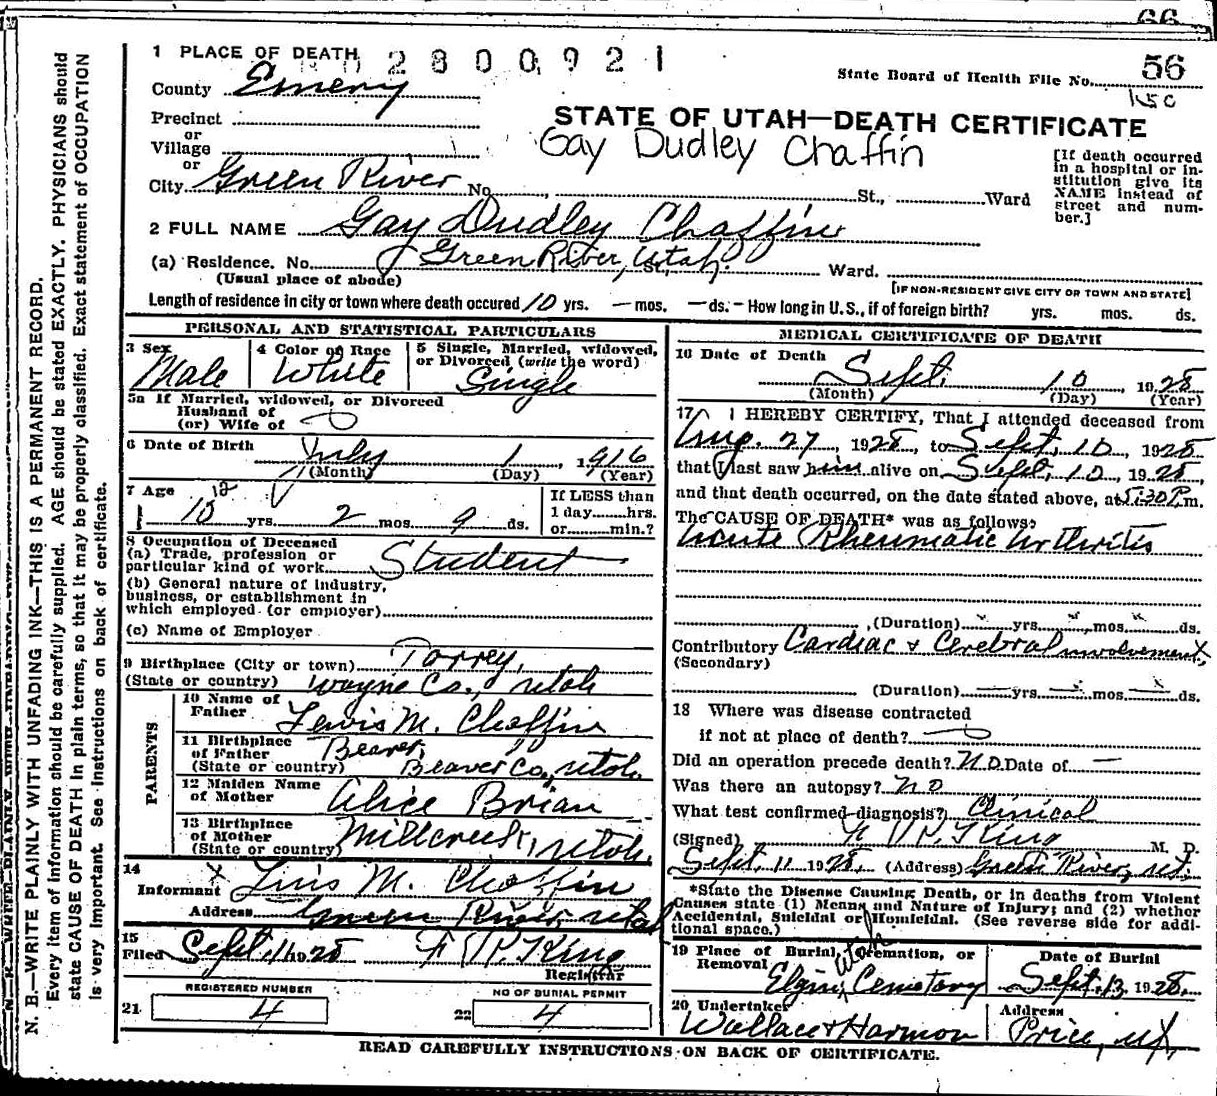 66
1 PLACE OF DEATH 2800921
State Board of Health File No. 56
County Emery
STATE OF UTAH—DEATH CERTIFICATE
Precinct
or
Village
or
Gay Dudley Chaffin
[If death occurred in a hospital or institution give its NAME instead of street and number.]
City Green River No. , St., Ward
2 FULL NAME Gay Dudley Chaffin
(a) Residence. No. Green River, Utah. St., Ward.
(Usual place of abode)
[IF NON-RESIDENT GIVE CITY OR TOWN AND STATE]
Length of residence in city or town where death occured 10 yrs. — mos. — ds. — How long in U. S., if of foreign birth? yrs. mos. ds.
PERSONAL AND STATISTICAL PARTICULARS
3 Sex Male
4 Color or Race White
5 Single, Married, widowed, or Divorced (write the word) Single
5a If Married, widowed, or Divorced
Husband of
(or) Wife of
6 Date of Birth July 1, 1916
(Month) (Day) (Year)
7 Age 12 yrs. 2 mos. 9 ds.
If LESS than
1 day hrs.
or min.?
8 Occupation of Deceased
(a) Trade, profession or
particular kind of work Student
(b) General nature of industry,
business, or establishment in
which employed (or employer)
(c) Name of Employer
9 Birthplace (City or town) Torrey,
(State or country) Wayne Co., Utah
PARENTS
10 Name of
Father Lewis M. Chaffin
11 Birthplace
of Father Beaver,
(State or country) Beaver Co., Utah
12 Maiden Name
of Mother Alice Brian
13 Birthplace
of Mother
(State or country) Millcreek, Utah.
14
Informant x Luis M. Chaffin
Address Green River, Utah
15
Filed Sept. 11 1928 F. V. P. King
Registrar
REGISTERED NUMBER
21 4
NO OF BURIAL PERMIT
22 4
MEDICAL CERTIFICATE OF DEATH
16 Date of Death Sept. 10, 1928
(Month) (Day) (Year)
17 I HEREBY CERTIFY, That I attended deceased from
Aug. 27 1928, to Sept. 10, 1928
that I last saw him alive on Sept. 10, 1928,
and that death occurred, on the date stated above, at 5:30 P. m.
The CAUSE OF DEATH* was as follows:
Acute Rheumatic Arthritis
, (Duration) yrs. mos. ds.
Contributory Cardiac & Cerebral involvement,
(Secondary)
(Duration) yrs. mos. ds.
18 Where was disease contracted
if not at place of death?
Did an operation precede death? No. Date of —
Was there an autopsy? no
What test confirmed diagnosis? Clinical
(Signed) F. V. P. King M. D.
Sept. 11 1928, (Address) Green River, Ut.
*State the Disease Causing Death, or in deaths from Violent
Causes state (1) Means and Nature of Injury; and (2) whether
Accidental, Suicidal or Homicidal. (See reverse side for additional space.)
19 Place of Burial, Cremation, or
Removal
Elgin, Utah Cemetary
Date of Burial
Sept. 13, 1928
20 Undertaker
Wallace & Harmon
Address
Price, Ut,
READ CAREFULLY INSTRUCTIONS ON BACK OF CERTIFICATE.
N. B.—WRITE PLAINLY WITH UNFADING INK—THIS IS A PERMANENT RECORD.
Every item of information should be carefully supplied. AGE should be stated EXACTLY. PHYSICIANS should
state CAUSE OF DEATH in plain terms, so that it may be properly classified. Exact statement of OCCUPATION
is very important. See instructions on back of certificate.